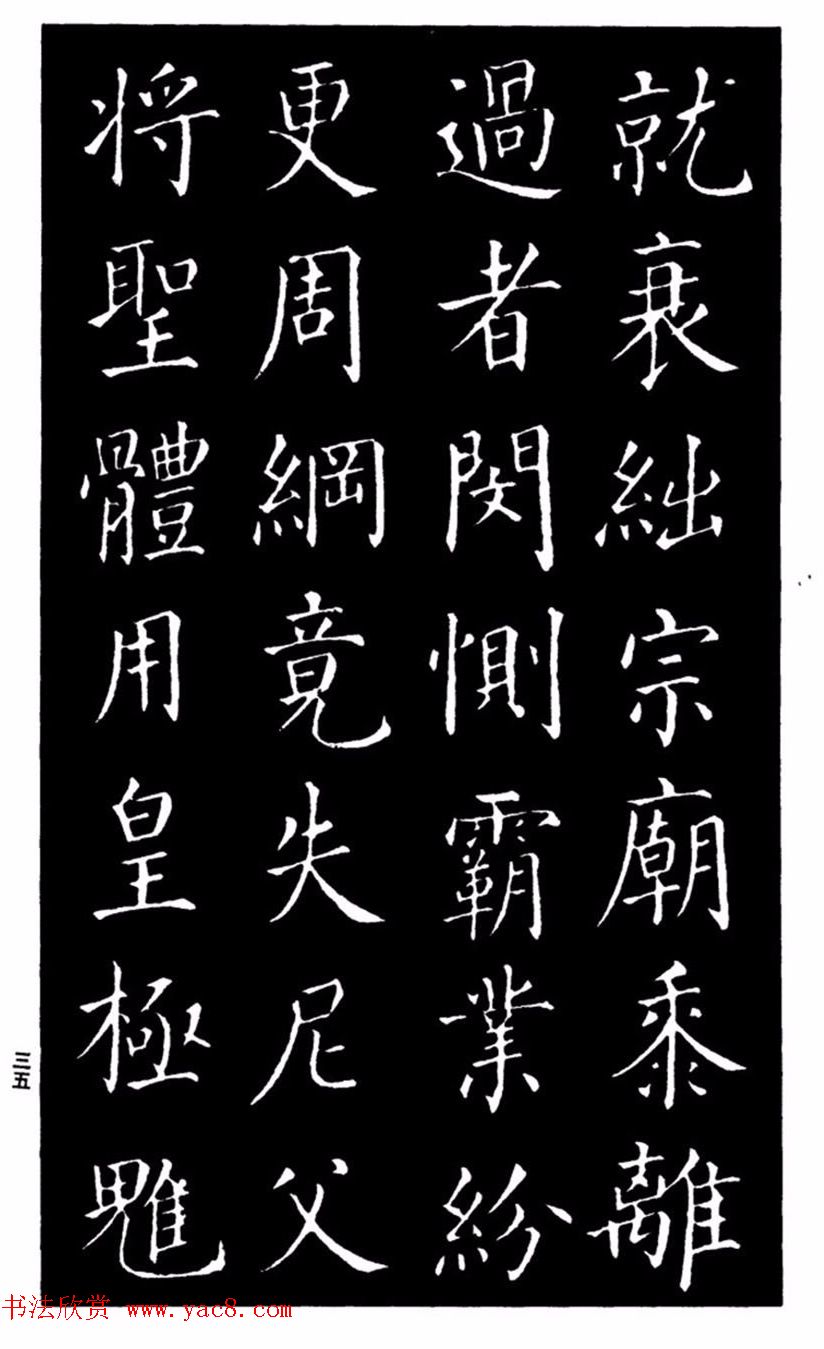 就衰絀宗廟黍離
過者閔惻霸業紛
更周綱竟失尼父
将聖體用皇極魋
三五
书法欣赏 www.yac8.com